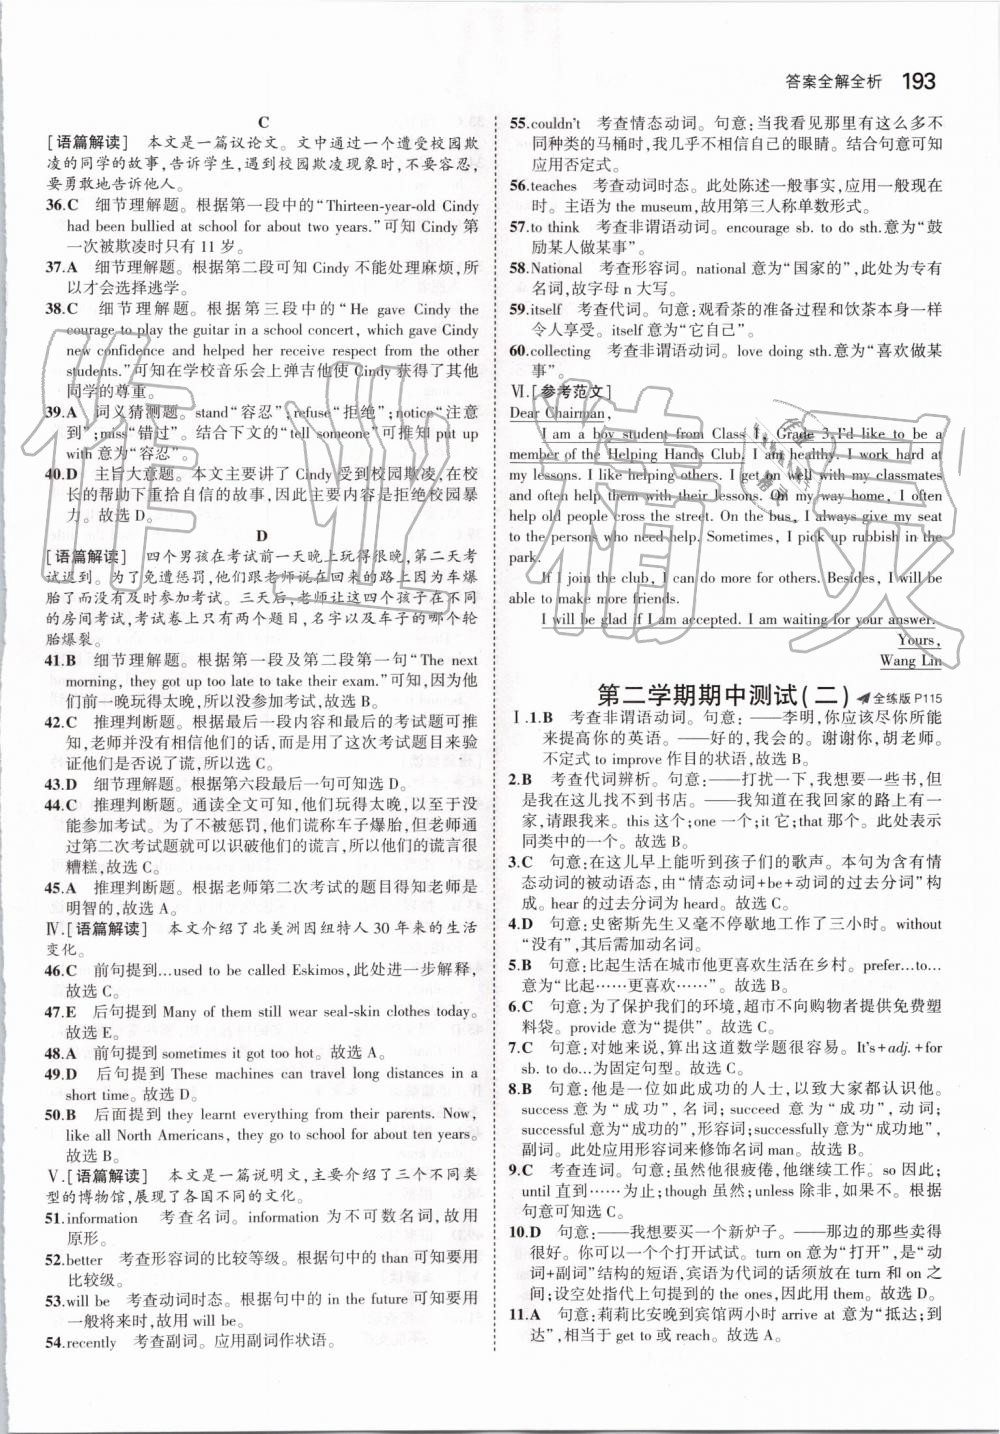 答案全解全析 193
C
[语篇解读] 本文是一篇议论文。文中通过一个遭受校园欺
凌的同学的故事,告诉学生,遇到校园欺凌现象时,不要容忍,
要勇敢地告诉他人。
36.C 细节理解题。根据第一段中的“Thirteen-year-old Cindy
had been bullied at school for about two years.”可知 Cindy 第
一次被欺凌时只有 11 岁。
37.A 细节理解题。根据第二段可知 Cindy 不能处理麻烦,所
以才会选择逃学。
38.C 细节理解题。根据第三段中的“He gave Cindy the
courage to play the guitar in a school concert, which gave Cindy
new confidence and helped her receive respect from the other
students.”可知在学校音乐会上弹吉他使 Cindy 获得了其他
同学的尊重。
39.A 词义猜测题。stand“容忍”;refuse“拒绝”;notice“注意
到”;miss“错过”。结合下文的“tell someone”可推知 put up
with 意为“容忍”。
40.D 主旨大意题。本文主要讲了 Cindy 受到校园欺凌,在校
长的帮助下重拾自信的故事,因此主要内容是拒绝校园暴
力。故选 D。
D
[语篇解读] 四个男孩在考试前一天晚上玩得很晚,第二天考
试迟到。为了免遭惩罚,他们跟老师说在回来的路上因为车
胎爆了而没有及时参加考试。三天后,老师让这四个孩子在不同
的房间考试,考试卷上只有两个题目,名字以及车子的哪个轮
胎爆裂。
41.B 细节理解题。根据第一段及第二段第一句“The next
morning, they got up too late to take their exam.”可知,因为他
们前一晚玩得太晚,所以没参加考试,故选 B。
42.C 推理判断题。根据最后一段内容和最后的考试题可推
知,老师并没有相信他们的话,而是用了这次考试题目来验
证他们是否说了谎,所以选 C。
43.D 细节理解题。根据第六段最后一句可知选 D。
44.C 推理判断题。通读全文可知,他们玩得太晚,以至于没
能参加考试。为了不被惩罚,他们谎称车子爆胎,但老师通
过第二次考试题就可以识破他们的谎言,所以他们的谎言很
糟糕,故选 C。
45.A 推理判断题。根据老师第二次考试的题目得知老师是
明智的,故选 A。
Ⅳ.[语篇解读] 本文介绍了北美洲因纽特人 30 年来的生活
变化。
46.C 前句提到...used to be called Eskimos,此处进一步解释,
故选 C。
47.E 后句提到 Many of them still wear seal-skin clothes today。
故选 E。
48.A 前句提到 sometimes it got too hot。故选 A。
49.D 后句提到 These machines can travel long distances in a
short time。故选 D。
50.B 后面提到 they learnt everything from their parents. Now,
like all North Americans, they go to school for about ten years。
故选 B。
Ⅴ.[语篇解读] 本文是一篇说明文,主要介绍了三个不同类
型的博物馆,展现了各国不同的文化。
51.information 考查名词。information 为不可数名词,故用
原形。
52.better 考查形容词的比较等级。根据句中的 than 可知要用
比较级。
53.will be 考查动词时态。根据句中的 in the future 可知要用
一般将来时,故用 will be。
54.recently 考查副词。应用副词作状语。
55.couldn't 考查情态动词。句意:当我看见那里有这么多不
同种类的马桶时,我几乎不相信自己的眼睛。结合句意可知
应用否定式。
56.teaches 考查动词时态。此处陈述一般事实,应用一般现在
时。主语为 the museum,故用第三人称单数形式。
57.to think 考查非谓语动词。encourage sb. to do sth.意为“鼓
励某人做某事”。
58.National 考查形容词。national 意为“国家的”,此处为专有
名词,故字母 n 大写。
59.itself 考查代词。句意:观看茶的准备过程和饮茶本身一样
令人享受。itself 意为“它自己”。
60.collecting 考查非谓语动词。love doing sth.意为“喜欢做某
事”。
Ⅵ.[参考范文]
Dear Chairman,
I am a boy student from Class 1, Grade 3.I'd like to be a
member of the Helping Hands Club. I am healthy. I work hard at
my lessons. I like helping others. I get on well with my classmates
and often help them with their lessons. On my way home, I often
help old people cross the street. On the bus, I always give my seat
to the persons who need help. Sometimes, I pick up rubbish in the
park.
If I join the club, I can do more for others. Besides, I will be
able to make more friends.
I will be glad if I am accepted. I am waiting for your answer.
Yours,
Wang Lin
第二学期期中测试(二) 全练版 P115
Ⅰ.1.B 考查非谓语动词。句意:——李明,你应该尽你所能
来提高你的英语。——好的,我会的。谢谢你,胡老师。
不定式 to improve 作目的状语,故选 B。
2.B 考查代词辨析。句意:——打扰一下,我想要一些书,但
是我在这儿找不到书店。——我知道在我回家的路上有一
家,请跟我来。this 这个;one 一个;it 它;that 那个。此处表示
同类中的一个。故选 B。
3.C 句意:在这儿早上能听到孩子们的歌声。本句为含有情
态动词的被动语态,由“情态动词+be+动词的过去分词”构
成。hear 的过去分词为 heard。故选 C。
4.D 句意:史密斯先生又毫不停歇地工作了三小时。without
“没有”,其后需加动名词。
5.B 句意:比起生活在城市他更喜欢生活在乡村。prefer...to...
意为“比起……更喜欢……”。故选 B。
6.C 句意:为了保护我们的环境,超市不向购物者提供免费塑
料袋。provide 意为“提供”。故选 C。
7.C 句意:对她来说,算出这道数学题很容易。It's+adj.+for
sb. to do...为固定句型。故选 C。
8.B 句意:他是一位如此成功的人士,以致大家都认识他。
success 意为“成功”,名词;succeed 意为“成功”,动词;
successful 意为“成功的”,形容词;successfully 意为“成功地”,
副词。此处应用形容词来修饰名词 man。故选 B。
9.C 考查连词。句意:虽然他很疲倦,他继续工作。so 因此;
until 直到……为止;though 虽然;unless 除非,如果不。根据
句意可知选 C。
10.D 句意:——我想要买一个新炉子。——那边的那些卖得
很好。你可以选一个来打开试试。turn on 意为“打开”,是“动
词+副词”结构的短语,宾语为代词的话须放在 turn 和 on 之
间;设空处指代上句提到的 the ones,因此用 them。故选 D。
11.A 句意:莉莉比安晚到宾馆两小时 arrive at 意为“抵达;到
达”,相当于 get to 或 reach。故选 A。
作业精灵